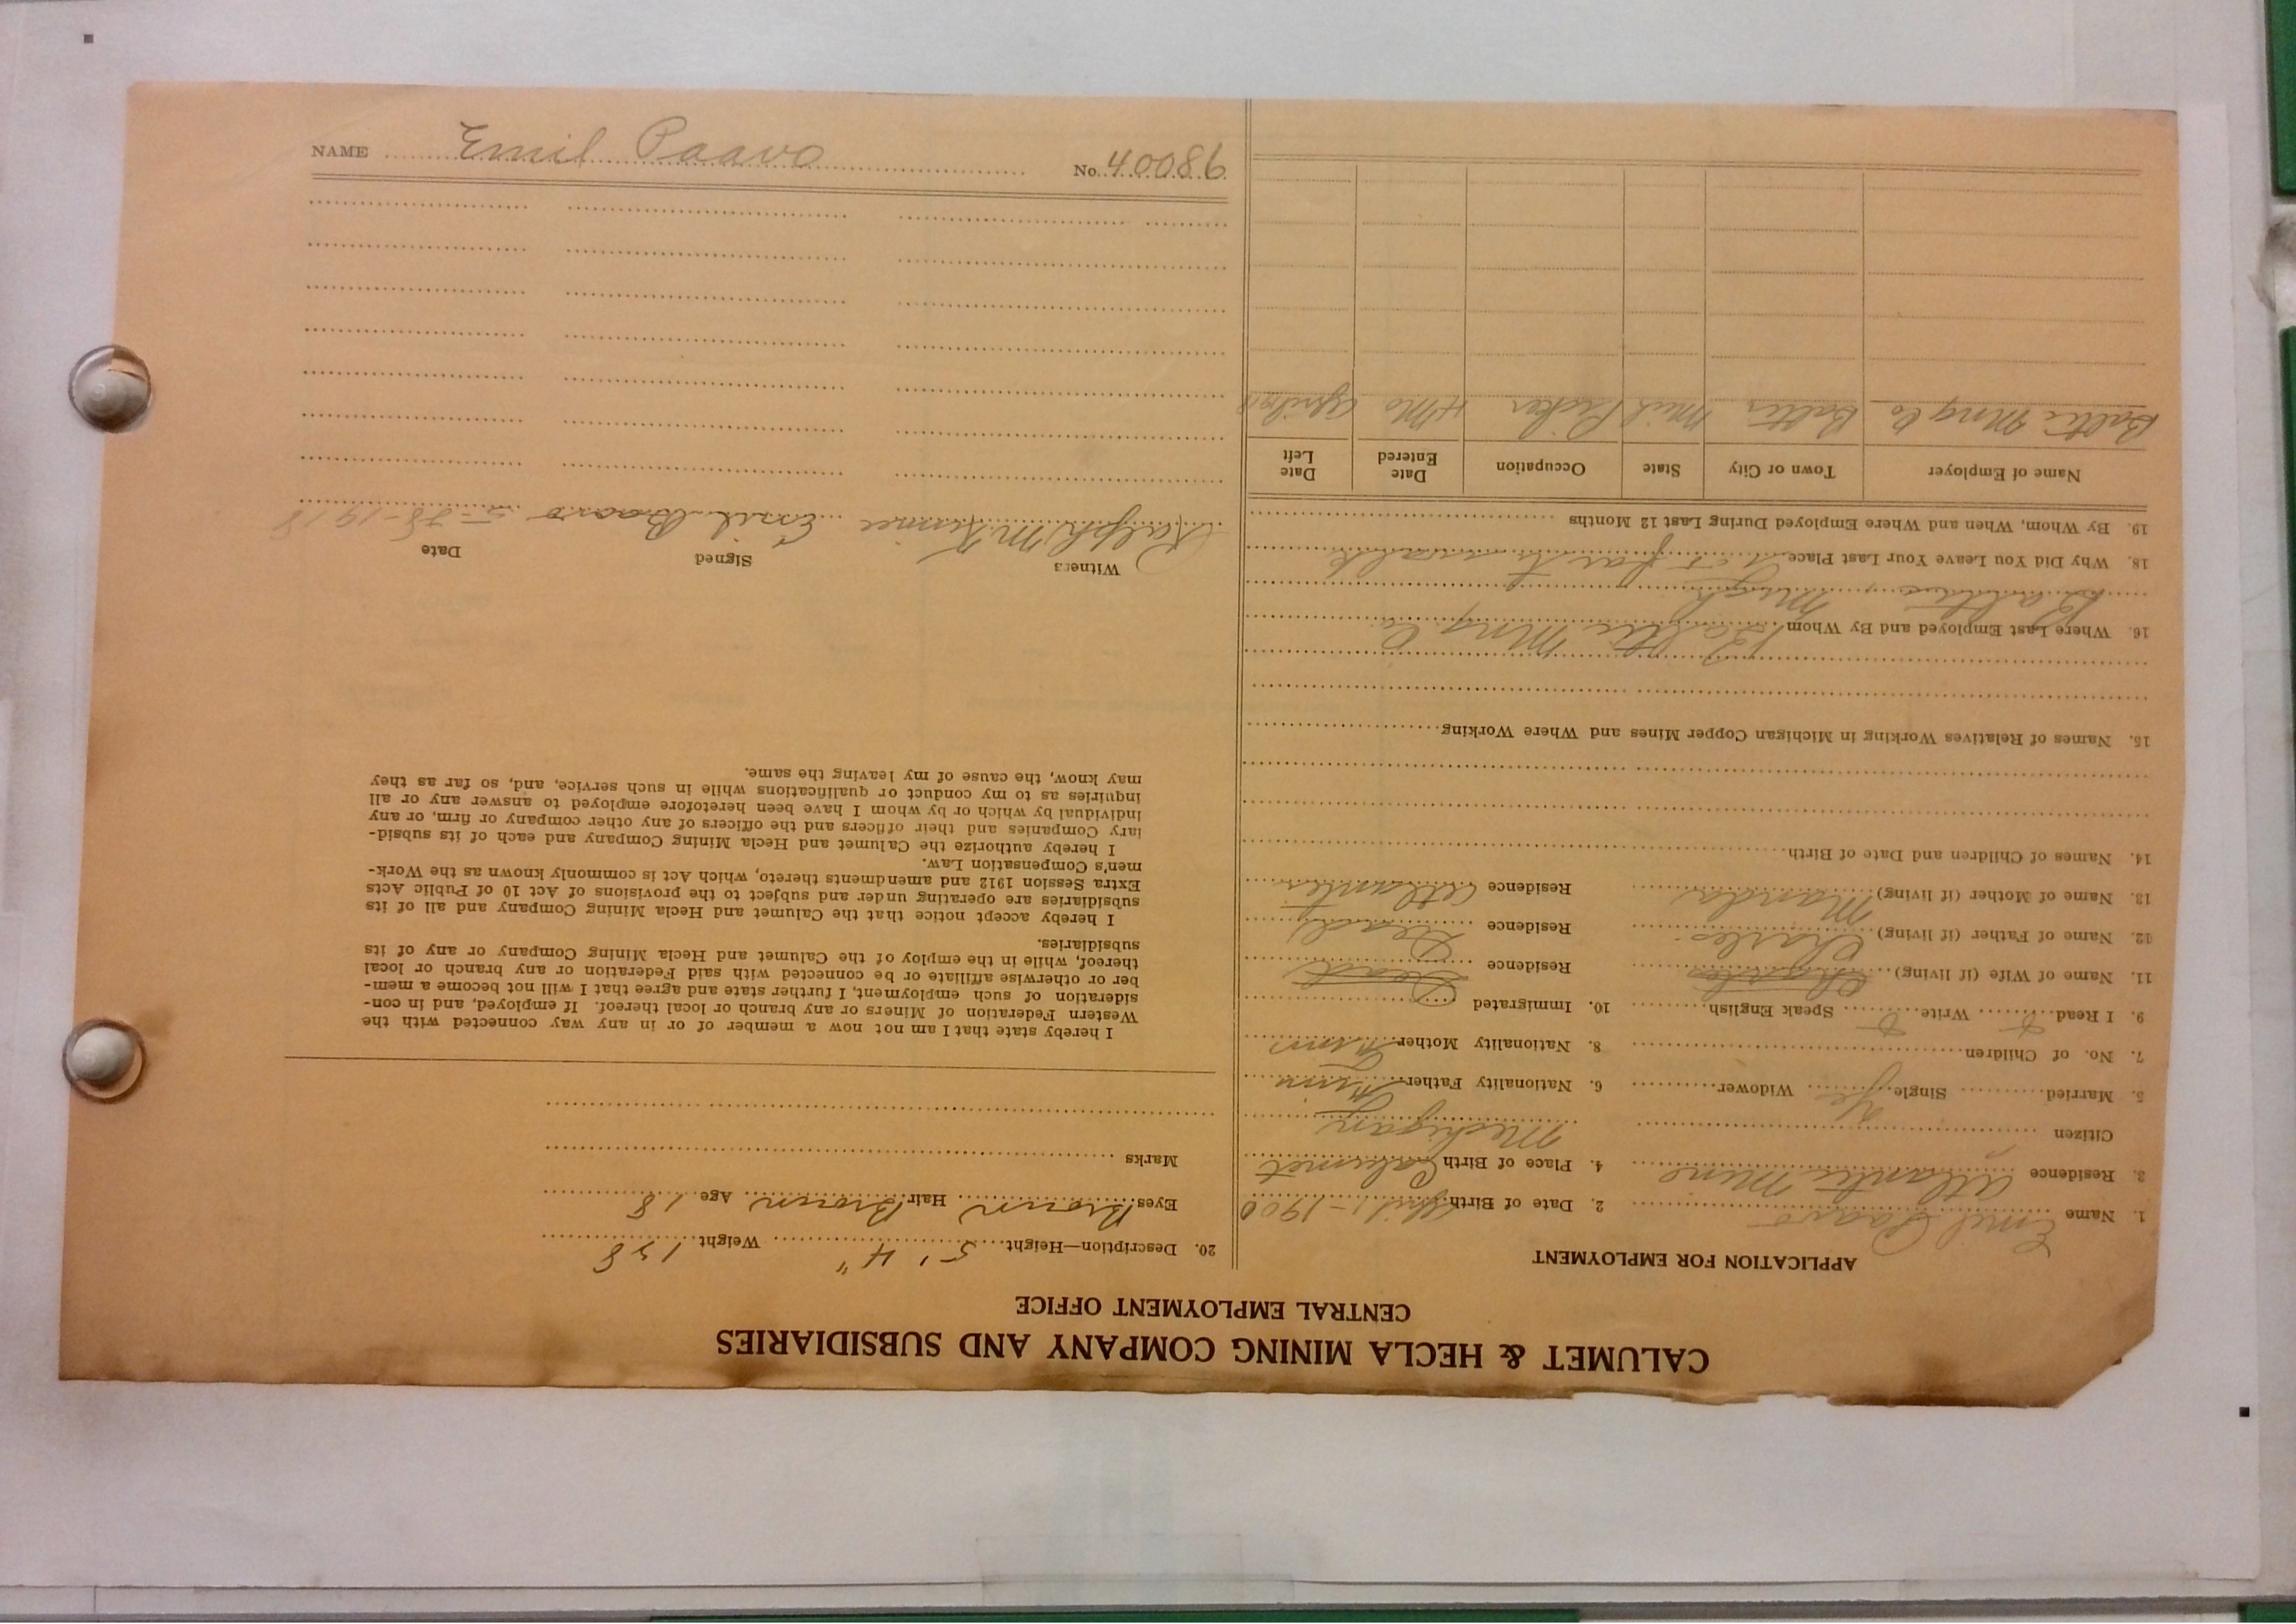 CALUMET & HECLA MINING COMPANY AND SUBSIDIARIES
CENTRAL EMPLOYMENT OFFICE
APPLICATION FOR EMPLOYMENT
1. Name Emil Paavo 2. Date of Birth April 1-1900
3. Residence Atlantic Mine 4. Place of Birth Calumet
Citizen Michigan
5. Married Single yes Widower 6. Nationality Father Finn
7. No. of Children 8. Nationality Mother Finn
9. I Read Write Speak English 10. Immigrated
11. Name of Wife (if living) Charles Residence Dead
12. Name of Father (if living) Charles Residence Dead
13. Name of Mother (if living) Manda Residence Atlantic
14. Names of Children and Date of Birth
15. Names of Relatives Working in Michigan Copper Mines and Where Working
16. Where Last Employed and By Whom Baltic Mng Co
Baltic Mich
18. Why Did You Leave Your Last Place to walk
19. By Whom, When and Where Employed During Last 12 Months
Name of Employer Town or City State Occupation Date Entered Date Left
Baltic Mng Co Baltic Mich Picker 4 Mo April
20. Description—Height 5' 4" Weight 138
Eyes Brown Hair Brown Age 18
Marks
I hereby state that I am not now a member of or in any way connected with the
Western Federation of Miners or any branch or local thereof. If employed, and in con-
sideration of such employment, I further state and agree that I will not become a mem-
ber or otherwise affiliate or be connected with said Federation or any branch or local
thereof, while in the employ of the Calumet and Hecla Mining Company or any of its
subsidiaries.
I hereby accept notice that the Calumet and Hecla Mining Company and all of its
subsidiaries are operating under and subject to the provisions of Act 10 of Public Acts
Extra Session 1912 and amendments thereto, which Act is commonly known as the Work-
men's Compensation Law.
I hereby authorize the Calumet and Hecla Mining Company and each of its subsid-
iary Companies and their officers and the officers of any other company or firm, or any
individual by which or by whom I have been heretofore employed to answer any or all
inquiries as to my conduct or qualifications while in such service, and, so far as they
may know, the cause of my leaving the same.
Witness Signed Date
Ralph McKinnie Emil Paavo 5-28-1918
NAME Emil Paavo No. 40086